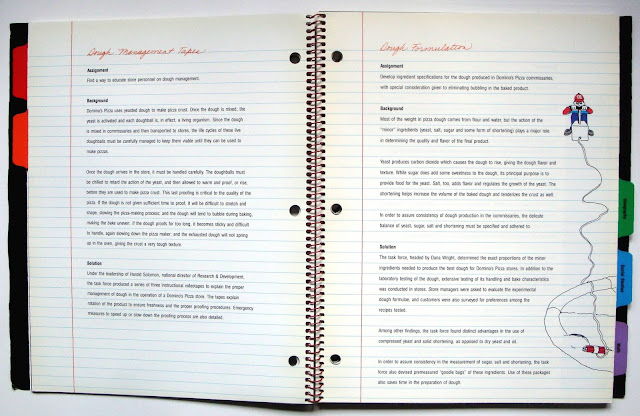 Dough Management Tapes
Assignment
Find a way to educate store personnel on dough management.
Background
Domino's Pizza uses yeasted dough to make pizza crust. Once the dough is mixed, the
yeast is activated and each doughball is, in effect, a living organism. Since the dough
is mixed in commissaries and then transported to stores, the life cycles of these live
doughballs must be carefully managed to keep them viable until they can be used to
make pizzas.
Once the dough arrives in the store, it must be handled carefully. The doughballs must
be chilled to retard the action of the yeast, and then allowed to warm and proof, or rise,
before they are used to make pizza crust. This last proofing is critical to the quality of the
pizza. If the dough is not given sufficient time to proof, it will be difficult to stretch and
shape, slowing the pizza-making process; and the dough will tend to bubble during baking,
making the bake uneven. If the dough proofs for too long, it becomes sticky and difficult
to handle, again slowing down the pizza maker; and the exhausted dough will not spring
up in the oven, giving the crust a very tough texture.
Solution
Under the leadership of Harold Solomon, national director of Research & Development,
the task force produced a series of three instructional videotapes to explain the proper
management of dough in the operation of a Domino's Pizza store. The tapes explain
rotation of the product to ensure freshness and the proper proofing procedures. Emergency
measures to speed up or slow down the proofing process are also detailed.
Dough Formulation
Assignment
Develop ingredient specifications for the dough produced in Domino's Pizza commissaries,
with special consideration given to eliminating bubbling in the baked product.
Background
Most of the weight in pizza dough comes from flour and water, but the action of the
"minor" ingredients (yeast, salt, sugar and some form of shortening) plays a major role
in determining the quality and flavor of the final product.
Yeast produces carbon dioxide which causes the dough to rise, giving the dough flavor and
texture. While sugar does add some sweetness to the dough, its principal purpose is to
provide food for the yeast. Salt, too, adds flavor and regulates the growth of the yeast. The
shortening helps increase the volume of the baked dough and tenderizes the crust as well.
In order to assure consistency of dough production in the commissaries, the delicate
balance of yeast, sugar, salt and shortening must be specified and adhered to.
Solution
The task force, headed by Dana Wright, determined the exact proportions of the minor
ingredients needed to produce the best dough for Domino's Pizza stores. In addition to the
laboratory testing of the dough, extensive testing of its handling and bake characteristics
was conducted in stores. Store managers were asked to evaluate the experimental
dough formulae, and customers were also surveyed for preferences among the
recipes tested.
Among other findings, the task force found distinct advantages in the use of
compressed yeast and solid shortening, as opposed to dry yeast and oil.
In order to assure consistency in the measurement of sugar, salt and shortening, the task
force also devised premeasured "goodie bags" of these ingredients. Use of these packages
also saves time in the preparation of dough.
Social Studies
Math